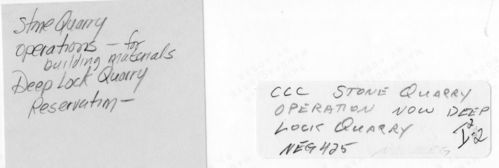 Stone Quarry
operations – for
building materials
Deep Lock Quarry
Reservation –
CCC STONE QUARRY
OPERATION NOW DEEP
LOCK QUARRY
NEG 425